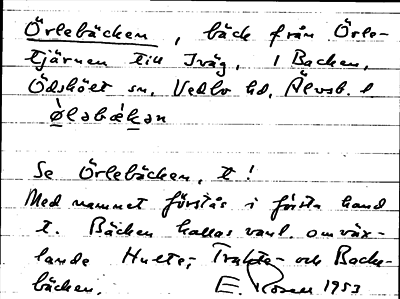 Örlebäcken, bäck från Örle-
tjärnen till Iväg, i Backen,
Ödskölt sn, Vedbo hd, Älvsb. l
ø̀ləbækən
Se Örlebäcken, t!
Med namnet förstås i första hand
t. Bäcken kallas vanl. omväx-
lande Hulte-, Trakte- och Backe-
bäcken. E. Rosell 1953